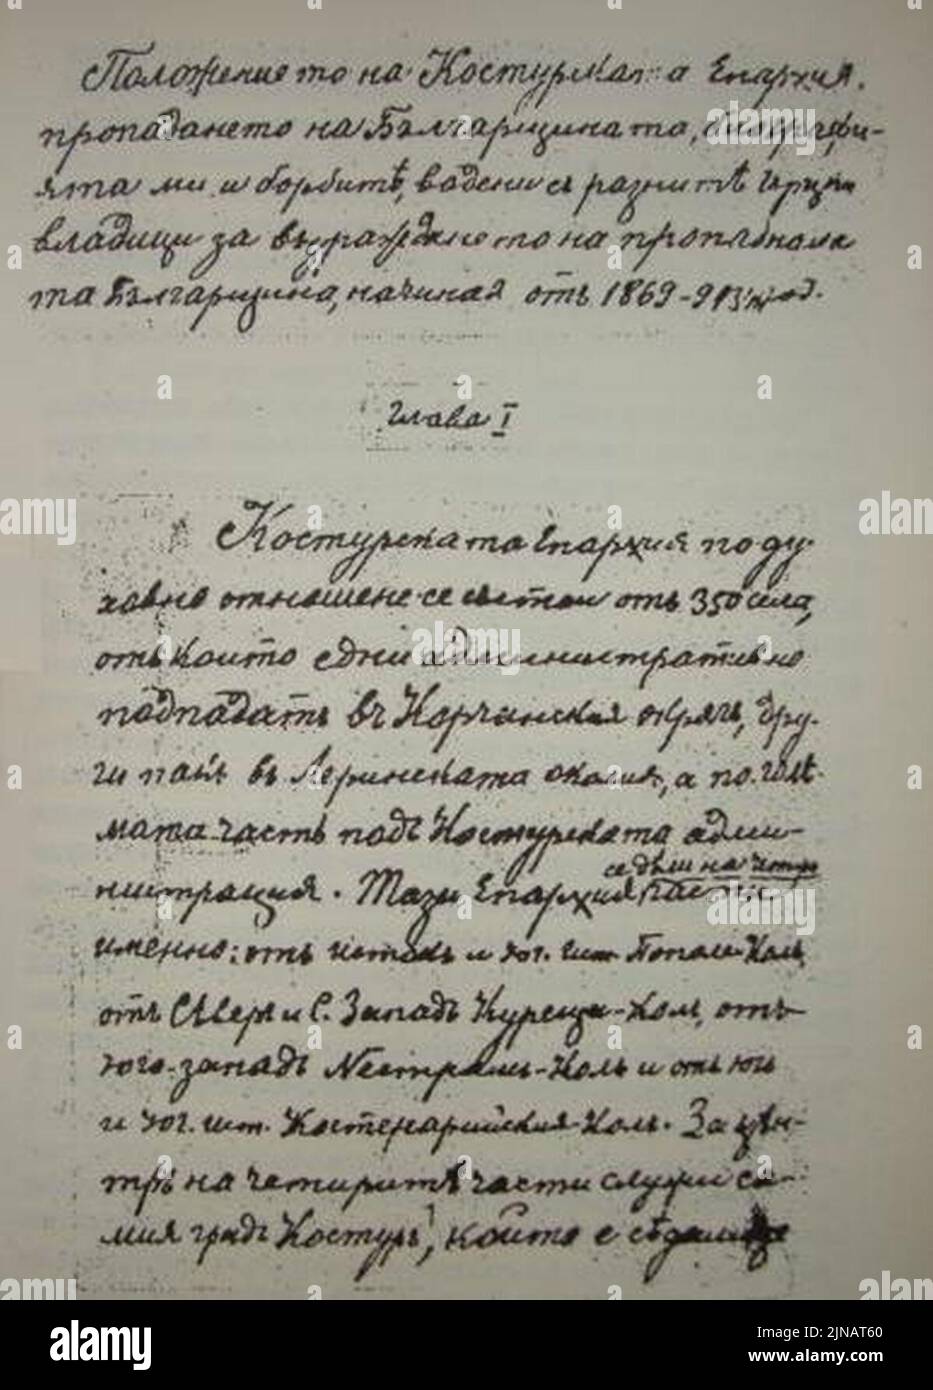 Положението на Костурската Епархия.
пропадането на Българщината, биографи-
ята ми и борбитѣ, водени съ разнитѣ гръцки
владици за възраждането на проплӗнала
та Българщина, начиная отъ 1869-913 год.
Глава I
Костурската Епархия по ду-
ховно отношение се състои отъ 350 села,
отъ които едни административно
подпадатъ въ Корчанския окрѫгъ, дру-
ги пакъ въ Леринската околия, а по. голѣ-
мата часть подъ Костурската адми-
нистрация. Тази Епархия се дѣли на четири части
именно: отъ истокъ и юг. ист. Пополе-Колъ,
отъ Северъ и С. Западъ Куреща-Колъ, отъ
юго-западъ Нестрамъ-Колъ и отъ югъ
и юг. ист. Костенарийския-Колъ. За цѣн-
тръ на четиритѣ части служи са-
мия градъ Костуръ, който е сѣдалище
alamy
Image ID: 2JNAT60
www.alamy.com